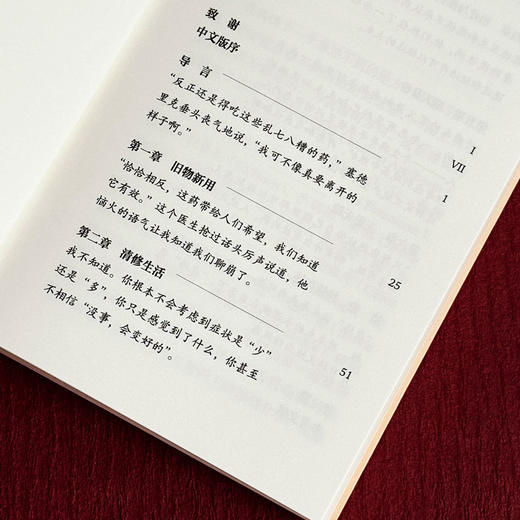 致 谢
中文版序
I
导 言
VII
“反正还是得吃这些乱七八糟的药，”塞德
里克垂头丧气地说，“我可不像真要离开的
样子啊。”
1
第一章 旧物新用
“恰恰相反，这药带给人们希望，我们知道
它有效。”这个医生抢过话头厉声说道，他
恼火的语气让我知道我们聊崩了。
25
第二章 清修生活
我不知道。你根本不会考虑到症状是“少”
还是“多”，你只是感觉到了什么，你甚至
不相信“没事，会变好的”。
51